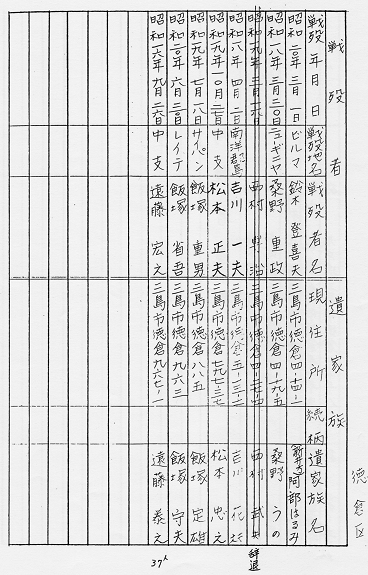 徳倉区
戦殁者 遺家族
戦殁年月日 戦殁地名 戦殁者名 現住所 続柄 遺家族名
昭和二〇年 三月 一日 ビルマ 鈴木 登喜夫 三島市徳倉四-一四-一 阿部はるみ
昭和一八年 三月二〇日 ニュギニヤ 桑野 重政 三島市徳倉四-一九-五 桑野 うの
昭和一九年 三月一六日 西村 三島市徳倉四-二七-四 西村 武 辞退
昭和一八年 四月 二日 南洋群島 吉川 一夫 三島市徳倉五-一三-二 吉川
昭和一九年一〇月二一日 中支 松本 正夫 三島市徳倉七九七-三七 松本 忠之
昭和一九年 七月一八日 サイパン 飯塚 重男 三島市徳倉八八五 飯塚 定雄
昭和二〇年 六月三〇日 レイテ 飯塚 省吾 三島市徳倉九六三 飯塚 守夫
昭和一六年 九月二六日 中支 遠藤 宏之 三島市徳倉九六七-一 遠藤 泰之
37人